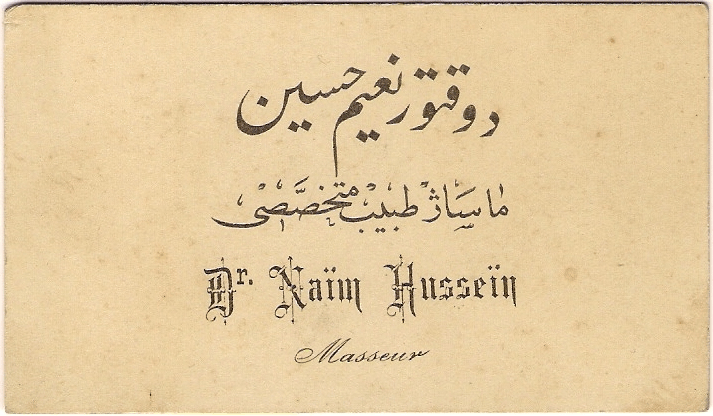 دوقتور نعيم حسين
ماساژ طبيب متخصّصى
Dr. Naïm Husseïn
Masseur